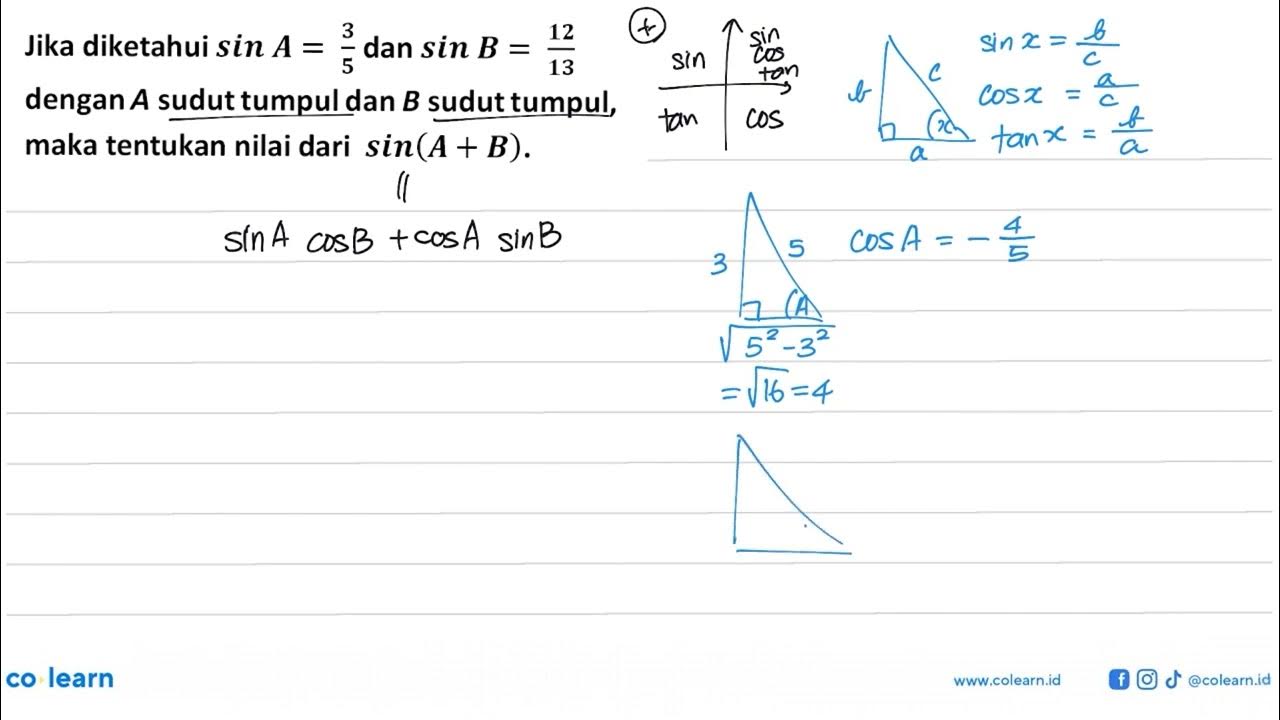 Jika diketahui sin A = 3/5 dan sin B = 12/13
dengan A sudut tumpul dan B sudut tumpul,
maka tentukan nilai dari sin(A + B).
sin A cos B + cos A sin B
+
sin
sin
cos
tan
tan
cos
b
c
a
x
sin x = b/c
cos x = a/c
tan x = b/a
3
5
A
√5² - 3²
= √16 = 4
cos A = - 4/5
co learn
www.colearn.id
@colearn.id